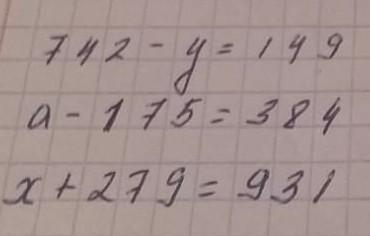 742 - y = 149
a - 175 = 384
x + 279 = 931